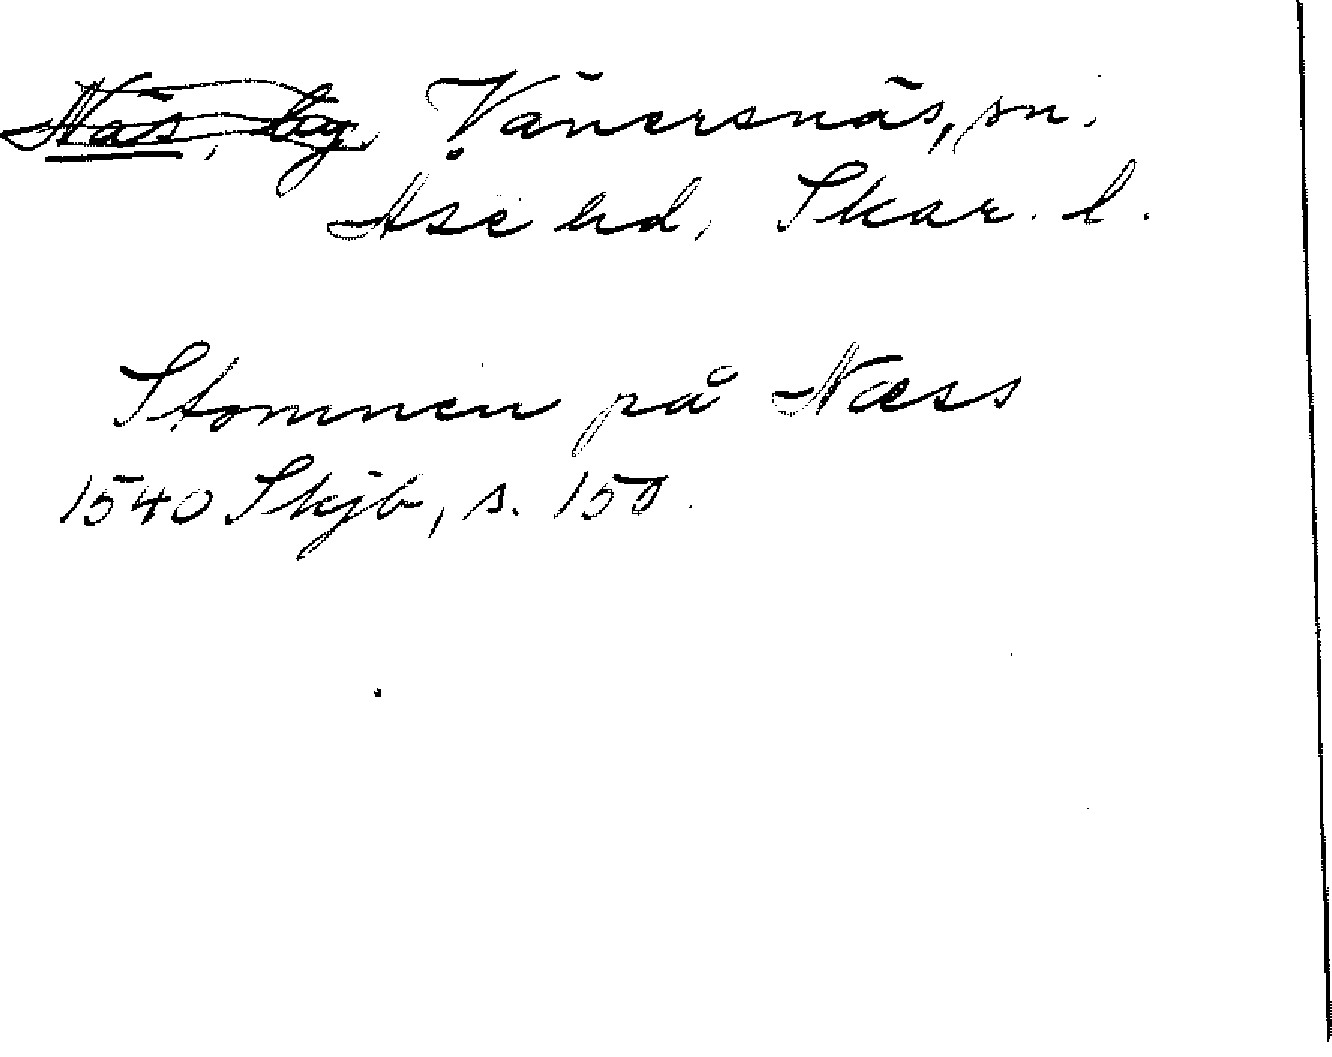 Näs, by Vänersnäs, sn.
Åse hd, Skar. l.
Stommen på Næss
1540 Skjb, s. 150.